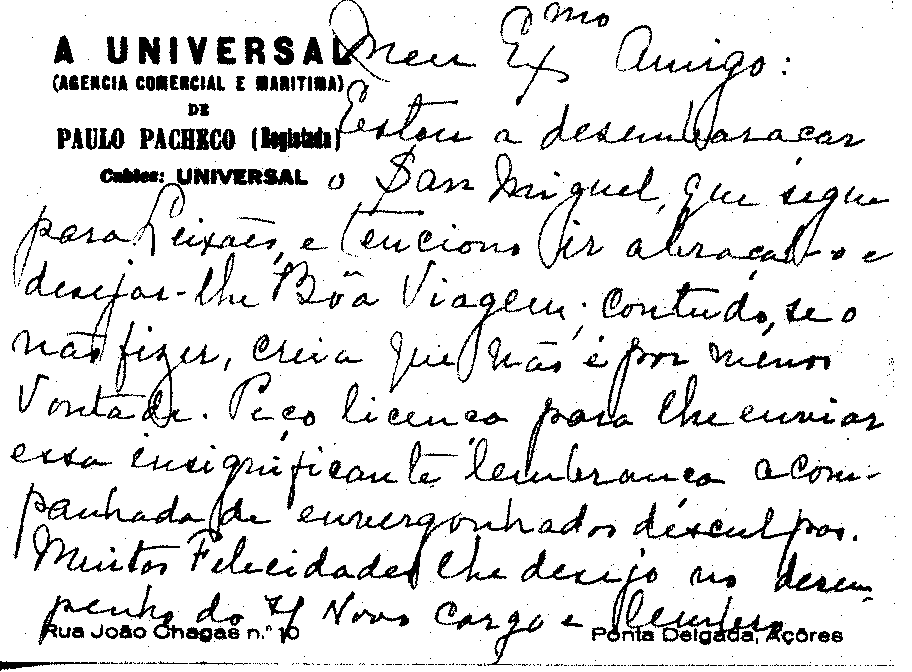 A UNIVERSAL
(AGENCIA COMERCIAL E MARITIMA)
DE
PAULO PACHECO (Registada)
Cables: UNIVERSAL
Meu Exmo Amigo:
Estou a desembaraçar
o San Miguel, que segue
para Leixões, e tenciono ir abraçal-o e
desejar-lhe Bôa Viagem; contudo, se o
não fizer, creia que não é por menos
Vontade. Peço licença para lhe enviar
essa insignificante lembrança acom-
panhada de envergonhadas desculpas.
Muitas Felicidades lhe desejo no desem-
penho do Novo cargo e
Rua João Chagas n.º 10 Ponta Delgada, Açôres